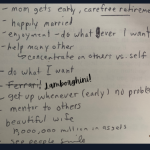 - mom gets early, carefree retirement
- happily married
- enjoyment - do what ever I want
- help many other
concentrate on others vs. self
- do what I want
- Ferrari Lamborghini!
- get up whenever (early) no problem
- mentor to others
beautiful wife
,000,000 million in assets
see people smile